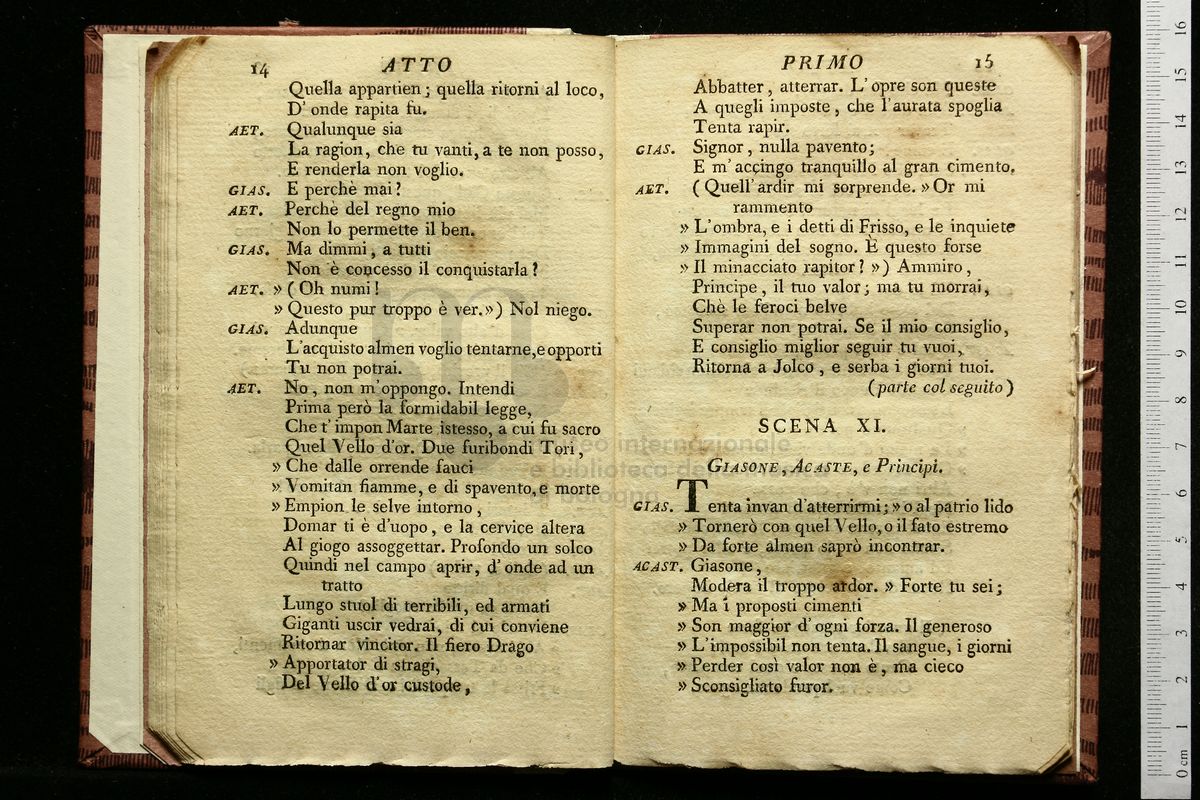 14 ATTO
Quella appartien; quella ritorni al loco,
D'onde rapita fu.
AET. Qualunque sia
La ragion, che tu vanti, a te non posso,
E renderla non voglio.
GIAS. E perchè mai?
AET. Perchè del regno mio
Non lo permette il ben.
GIAS. Ma dimmi, a tutti
Non è concesso il conquistarla?
AET. » (Oh numi!
» Questo pur troppo è ver.») Nol niego.
GIAS. Adunque
L'acquisto almen voglio tentarne, e opporti
Tu non potrai.
AET. No, non m'oppongo. Intendi
Prima però la formidabil legge,
Che t'impon Marte istesso, a cui fu sacro
Quel Vello d'or. Due furibondi Tori,
» Che dalle orrende fauci
» Vomitan fiamme, e di spavento, e morte
» Empion le selve intorno,
Domar ti è d'uopo, e la cervice altera
Al giogo assoggettar. Profondo un solco
Quindi nel campo aprir, d'onde ad un
tratto
Lungo stuol di terribili, ed armati
Giganti uscir vedrai, di cui conviene
Ritornar vincitor. Il fiero Drago
» Apportator di stragi,
Del Vello d'or custode,
PRIMO 15
Abbatter, atterrar. L'opre son queste
A quegli imposte, che l'aurata spoglia
Tenta rapir.
GIAS. Signor, nulla pavento;
E m'accingo tranquillo al gran cimento.
AET. (Quell'ardir mi sorprende. » Or mi
rammento
» L'ombra, e i detti di Frisso, e le inquiete
» Immagini del sogno. È questo forse
» Il minacciato rapitor? ») Ammiro,
Principe, il tuo valor; ma tu morrai,
Chè le feroci belve
Superar non potrai. Se il mio consiglio,
E consiglio miglior seguir tu vuoi,
Ritorna a Jolco, e serba i giorni tuoi.
(parte col seguito)
SCENA XI.
GIASONE, ACASTE, e Principi.
GIAS. Tenta invan d'atterrirmi; » o al patrio lido
» Tornerò con quel Vello, o il fato estremo
» Da forte almen saprò incontrar.
ACAST. Giasone,
Modera il troppo ardor. » Forte tu sei;
» Ma i proposti cimenti
» Son maggior d'ogni forza. Il generoso
» L'impossibil non tenta. Il sangue, i giorni
» Perder così valor non è, ma cieco
» Sconsigliato furor.
museo internazionale
e biblioteca de
bologna
0 cm 1 2 3 4 5 6 7 8 9 10 11 12 13 14 15 16